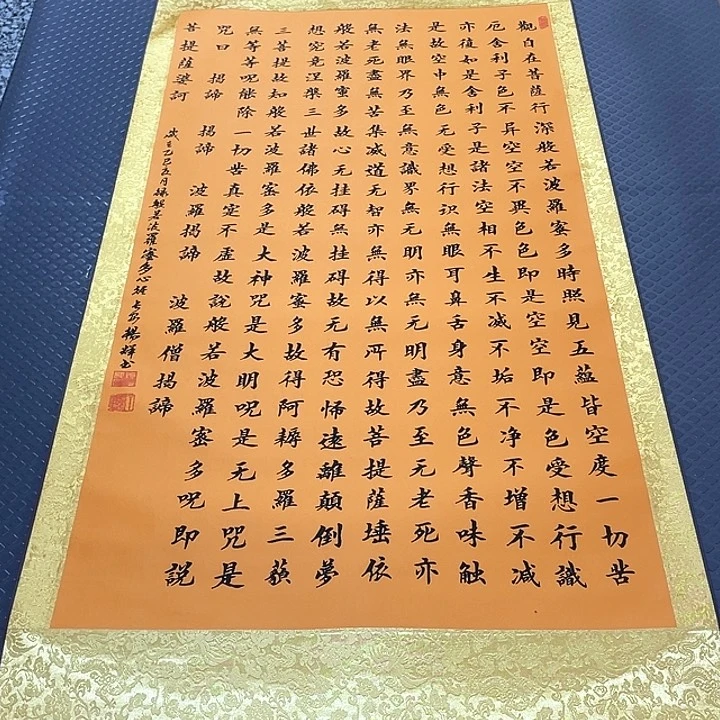 觀自在菩薩行深般若波羅蜜多時照見五蘊皆空度一切苦
厄舍利子色不异空空不異色色即是空空即是色受想行識
亦復如是舍利子是諸法空相不生不滅不垢不净不增不减
是故空中無色无受想行识無眼耳鼻舌身意無色聲香味触
法無眼界乃至無意識界無无明亦無无明盡乃至无老死亦
無老死盡無苦集滅道无智亦無得以無所得故菩提薩埵依
般若波羅蜜多故心无挂碍無挂碍故无有恐怖遠離顛倒夢
想究竟涅槃三世諸佛依般若波羅蜜多故得阿耨多羅三藐
三菩提故知般若波羅蜜多是大神咒是大明呪是无上咒是
無等等呪能除一切苦真实不虛故說般若波羅蜜多呪即説
咒曰 揭諦 揭諦 波羅揭諦 波羅僧揭諦
菩提薩婆訶
歲在乙巳五月錄般若波羅蜜多心經 楊輝書